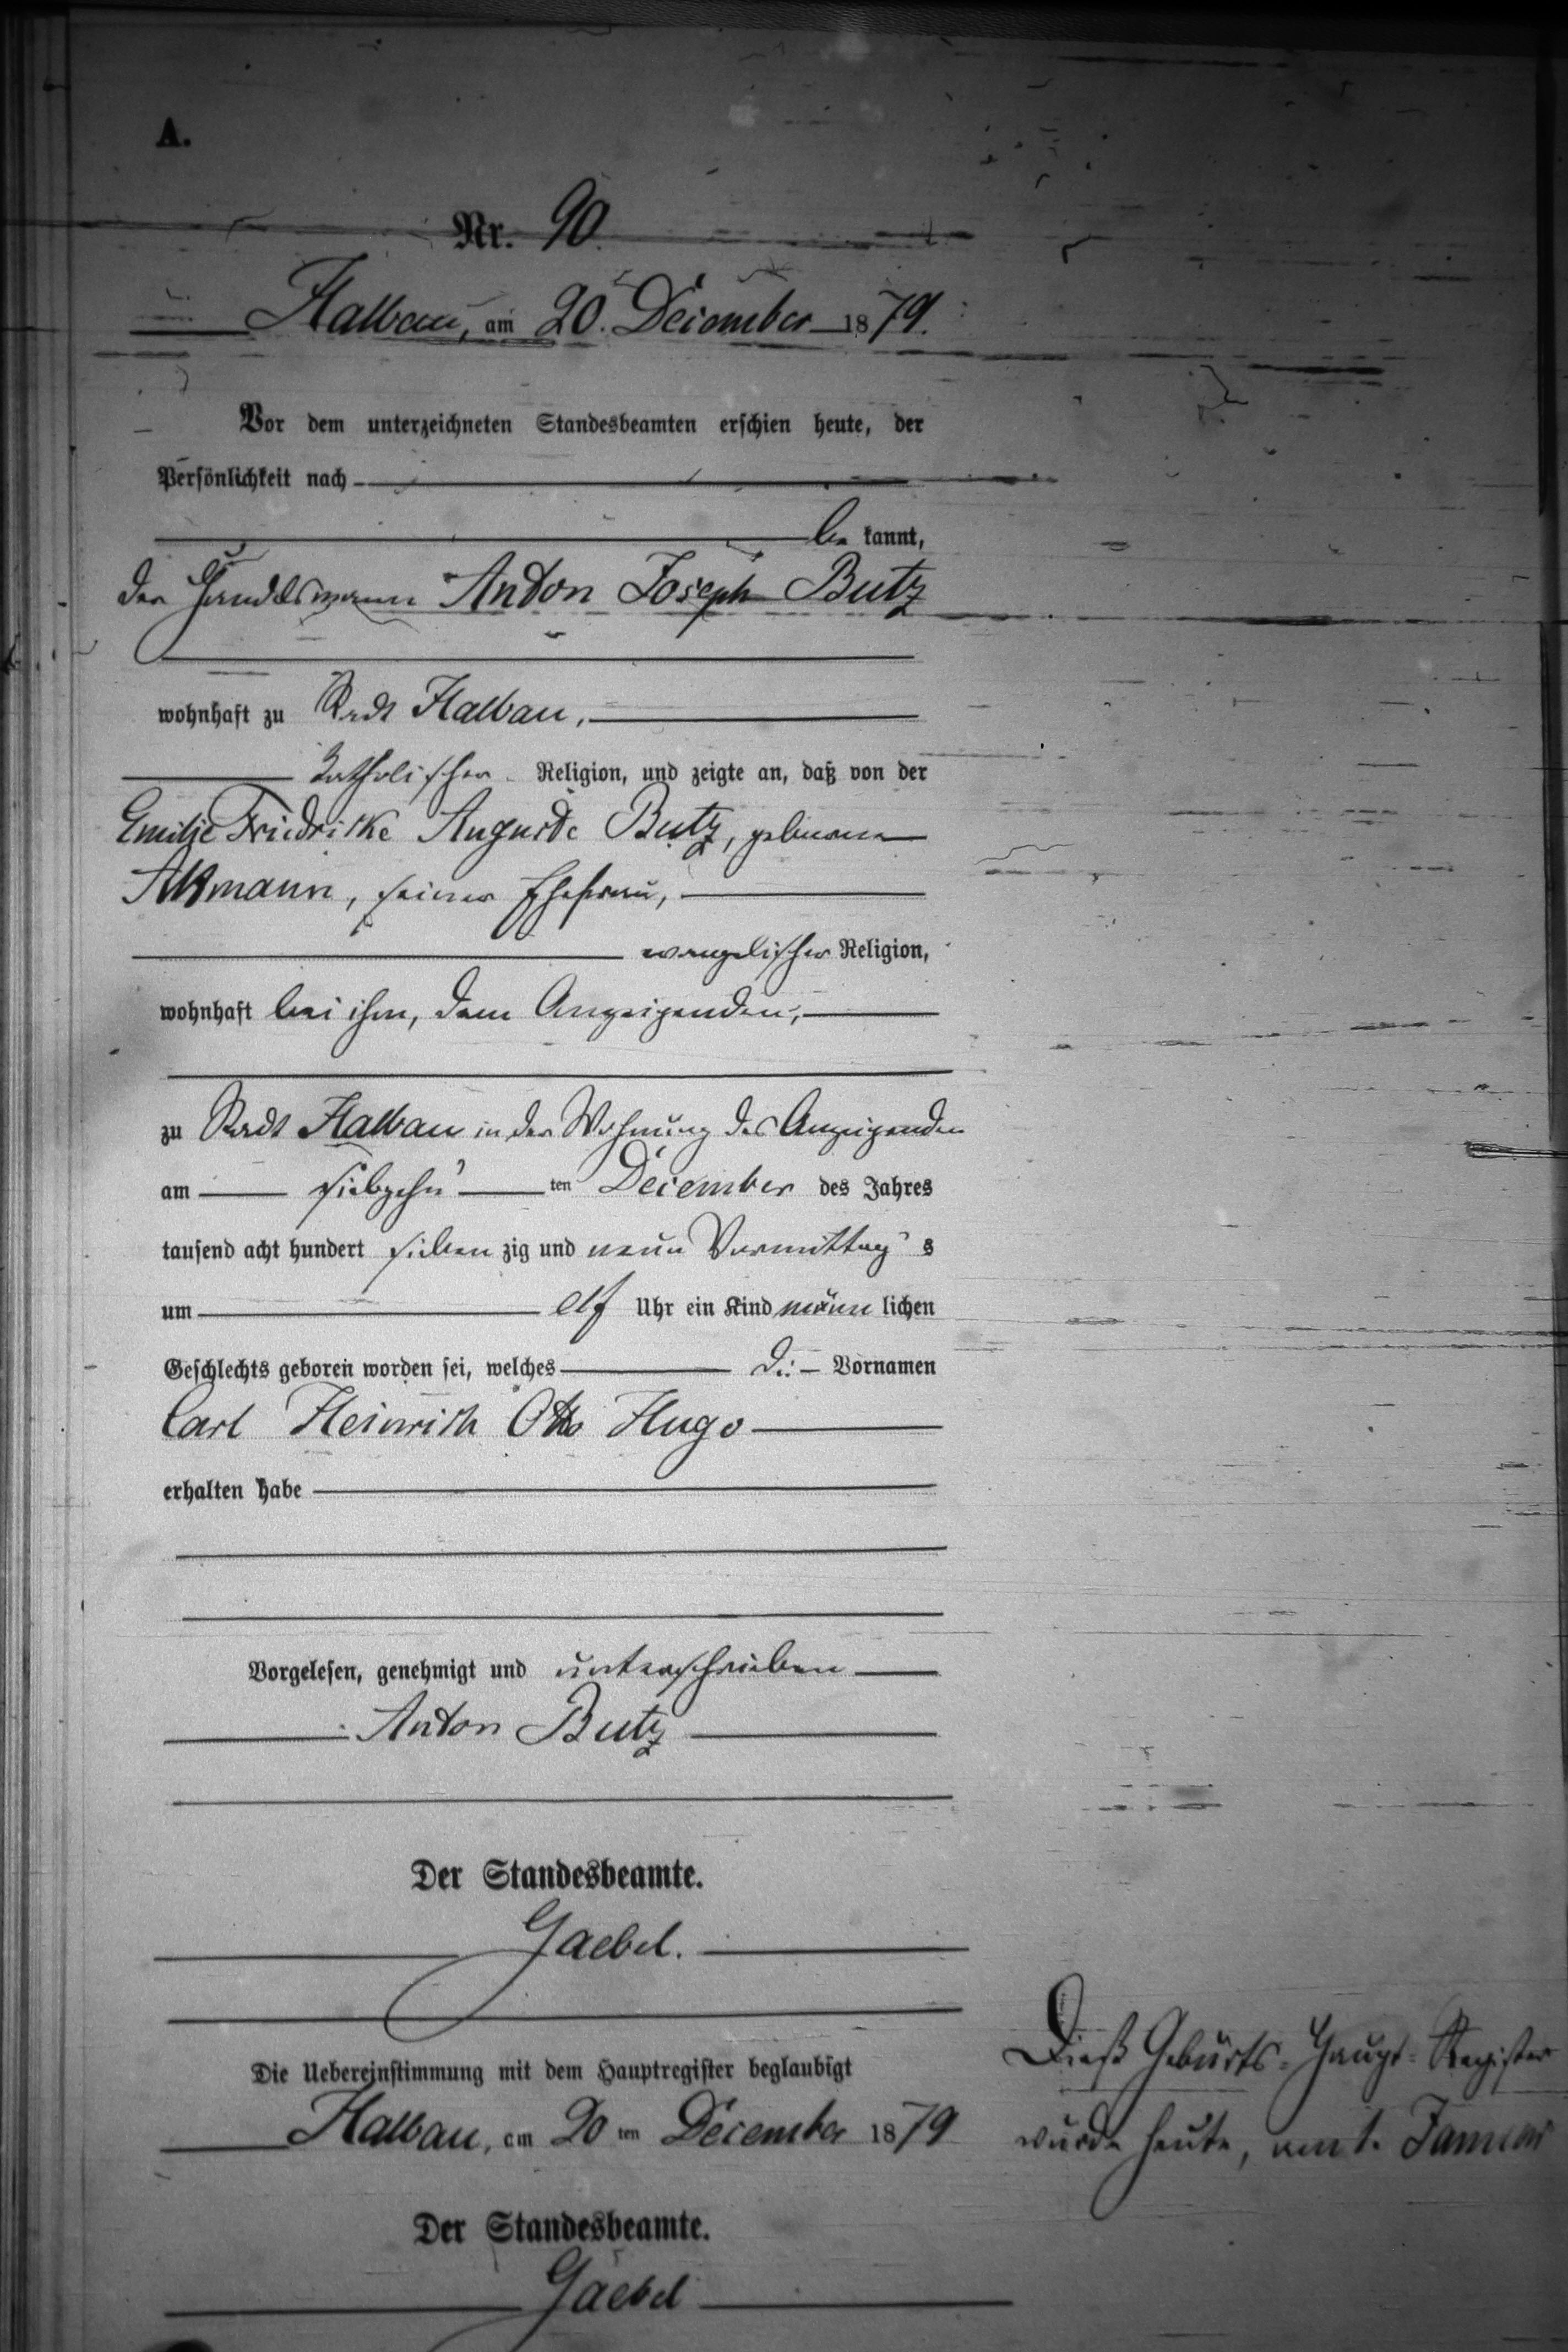 A.
Nr. 90.
Halbau, am 20. December 1879.
Vor dem unterzeichneten Standesbeamten erschien heute, der
Persönlichkeit nach
be kannt,
der Handelsmann Anton Joseph Butz
wohnhaft zu Stadt Halbau,
katholischer Religion, und zeigte an, daß von der
Emilie Friedricke Auguste Butz, geborene
Altmann, seiner Ehefrau,
evangelischer Religion,
wohnhaft bei ihm, dem Anzeigenden,
zu Stadt Halbau in der Wohnung des Anzeigenden
am siebzehn ten December des Jahres
tausend acht hundert sieben zig und neun Vormittag s
um elf Uhr ein Kind männ lichen
Geschlechts geboren worden sei, welches die Vornamen
Carl Heinrich Otto Hugo
erhalten habe
Vorgelesen, genehmigt und unterschrieben
Anton Butz
Der Standesbeamte.
Gaebel.
Die Uebereinstimmung mit dem Hauptregister beglaubigt
Halbau, am 20 ten December 1879
Der Standesbeamte.
Gaebel
Dieß Geburts-Haupt-Register
wurde heute, am 1. Januar